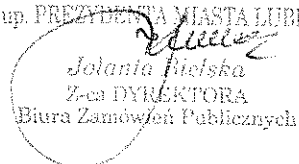 up. PREZYDENTA MIASTA LUBL
Jolanta Bielska
Z-ca DYREKTORA
Biura Zamówień Publicznych